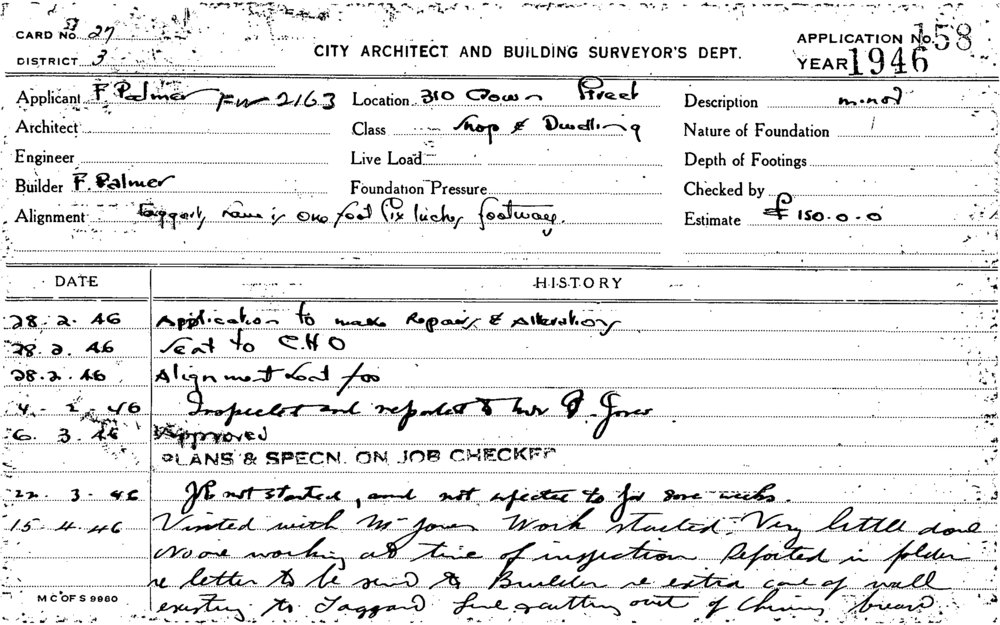 CARD No. 27
53
DISTRICT 3
CITY ARCHITECT AND BUILDING SURVEYOR'S DEPT.
APPLICATION No. 158
YEAR 1946
Applicant F Palmer FW 2163
Location 310 Crown Street
Description minor
Architect
Class Shop & Dwelling
Nature of Foundation
Engineer
Live Load
Depth of Footings
Builder F. Palmer
Foundation Pressure
Checked by
Alignment Taggarts Lane is One foot Six Inches footway.
Estimate £150.0.0
DATE
HISTORY
28.2.46 Application to make Repairs & Alterations
28.2.46 Sent to C.H.O
28.2.46 Alignment sent for
4.2.46 Inspected and reported to Mr Jones
6.3.46 Approved
PLANS & SPECN. ON JOB CHECKED
22.3.46 Job not started, and not expected to for some weeks.
15.4.46 Visited with Mr Jones Work started. Very little done
No one working at time of inspection Reported in folder
re letter to be send to Builder re extra care of wall
existing to Taggart Lane cutting out of Chimney breast
M C OF S 9980